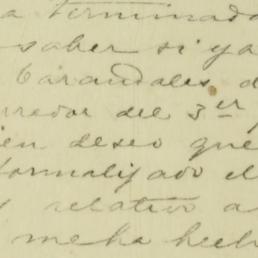 a terminado
saber si ya
barandales d
rredor del 3er
ien deseo que
formalizado el
s relativo a
me ha hech